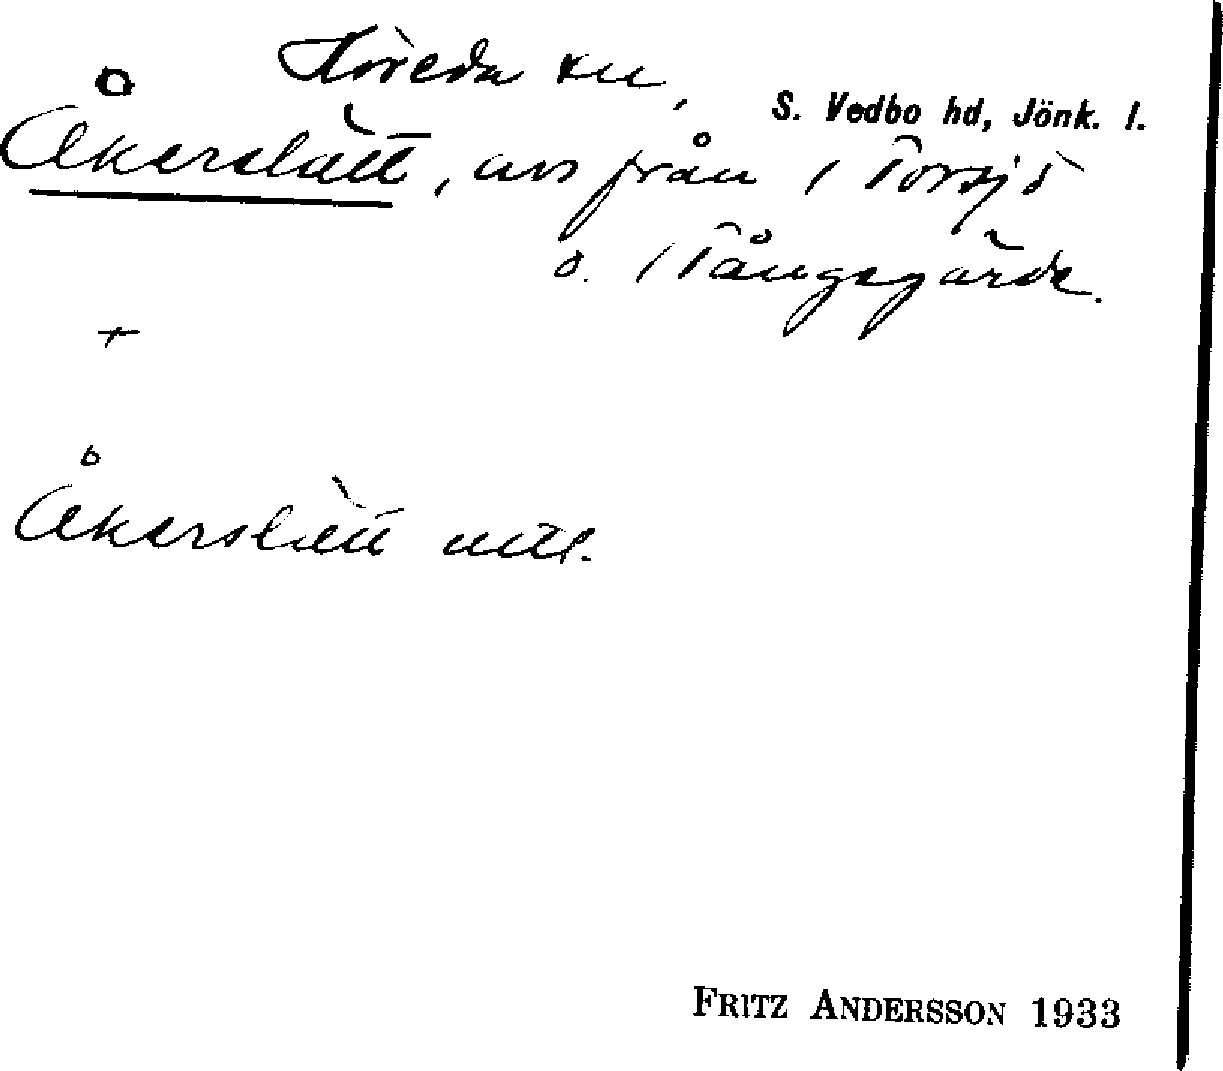 Höreda sn, S. Vedbo hd, Jönk. l.
Åkerslätt, avs från 1 Torsjö
o. 1 Tångsgärde.
+
Åkerslätt uttl.
FRITZ ANDERSSON 1933